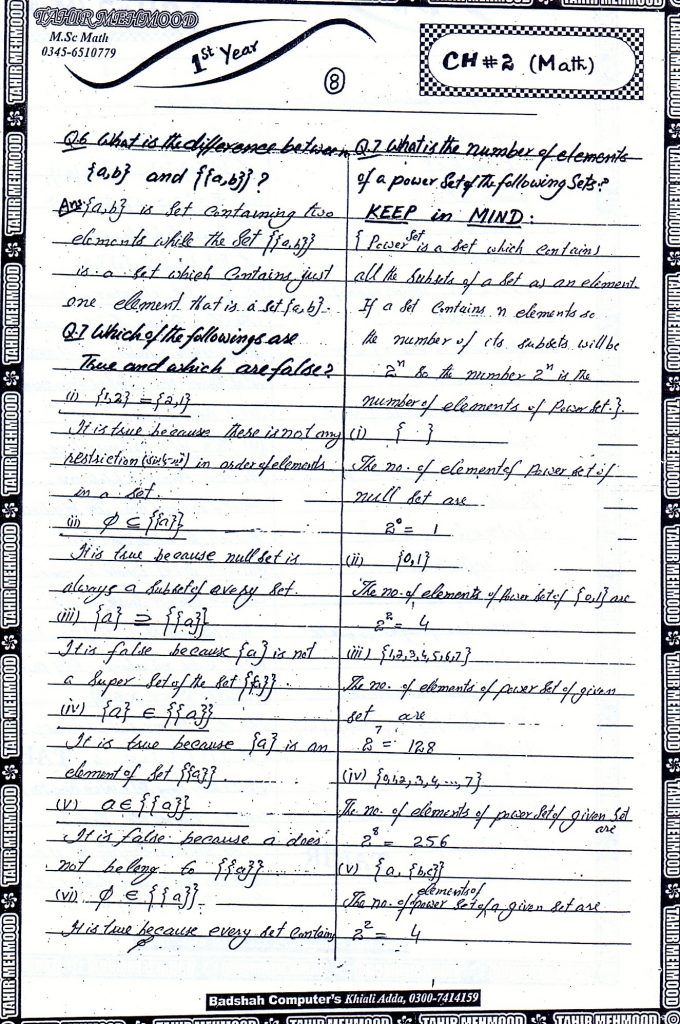 TAHIR MEHMOOD
M.Sc Math
0345-6510779
1st Year
8
CH #2 (Math)
Q.6 What is the difference between
{a,b} and {{a,b}} ?
Ans {a,b} is Set Containing two
elements while the Set {{a,b}}
is a set which Contains just
one element that is a set {a,b}.
Q.7 Which of the followings are
True and which are false?
(i) {1,2} = {2,1}
It is true because there is not any
restriction in order of elements
in a set.
(ii) φ ⊆ {{a}}
It is true because null set is
always a Subset of every Set.
(iii) {a} ⊇ {{a}}
It is false because {a} is not
a Super Set of the Set {{a}}
(iv) {a} ∈ {{a}}
It is true because {a} is an
element of Set {{a}}.
(v) a ∈ {{a}}
It is false because a does
not belong to {{a}}
(vi) φ ∈ {{a}}
It is true because every set Contains
φ
Q.7 What is the number of elements
of a power Set of the following Sets?
KEEP in MIND:
{ Power Set is a set which Contains
all the Subsets of a Set as an element
If a Set Contains n elements so
the number of its subsets will be
2^n So the number 2^n is the
number of elements of Power Set.}
(i) { }
The no. of element of Power set of
null Set are
2^0 = 1
(ii) {0,1}
The no. of elements of Power Set of {0,1} are
2^2 = 4
(iii) {1,2,3,4,5,6,7}
The no. of elements of power Set of given
set are
2^7 = 128
(iv) {0,1,2,3,4,...,7}
The no. of elements of power Set of given Set are
2^8 = 256
(v) {a, {b,c}}
The no. of elements of power Set of a given Set are
2^2 = 4
Badshah Computer's Khiali Adda, 0300-7414159
TAHIR MEHMOOD